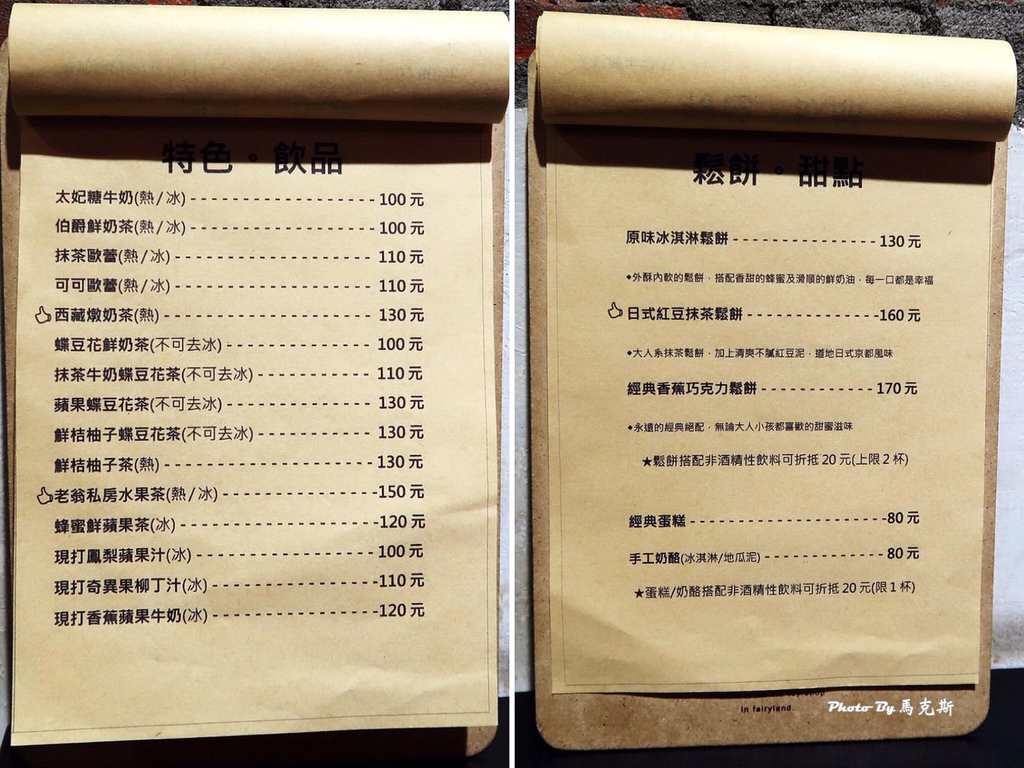 特色。飲品
太妃糖牛奶(熱/冰)--------------------100元
伯爵鮮奶茶(熱/冰)--------------------100元
抹茶歐蕾(熱/冰)----------------------110元
可可歐蕾(熱/冰)----------------------110元
西藏燉奶茶(熱)-----------------------130元
蝶豆花鮮奶茶(不可去冰)----------------100元
抹茶牛奶蝶豆花茶(不可去冰)------------110元
蘋果蝶豆花茶(不可去冰)----------------130元
鮮桔柚子蝶豆花茶(不可去冰)------------130元
鮮桔柚子茶(熱)-----------------------130元
老翁私房水果茶(熱/冰)-----------------150元
蜂蜜鮮蘋果茶(冰)---------------------120元
現打鳳梨蘋果汁(冰)-------------------100元
現打奇異果柳丁汁(冰)------------------110元
現打香蕉蘋果牛奶(冰)------------------120元
鬆餅。甜點
原味冰淇淋鬆餅---------------130元
◆外酥內軟的鬆餅，搭配香甜的蜂蜜及滑順的鮮奶油，每一口都是幸福
日式紅豆抹茶鬆餅--------------160元
◆大人系抹茶鬆餅，加上清爽不膩紅豆泥，道地日式京都風味
經典香蕉巧克力鬆餅------------170元
◆永遠的經典絕配，無論大人小孩都喜歡的甜蜜滋味
★鬆餅搭配非酒精性飲料可折抵20元(上限2杯)
經典蛋糕---------------------80元
手工奶酪(冰淇淋/地瓜泥)-------------80元
★蛋糕/奶酪搭配非酒精性飲料可折抵20元(限1杯)
in fairyland.
Photo By 馬克斯